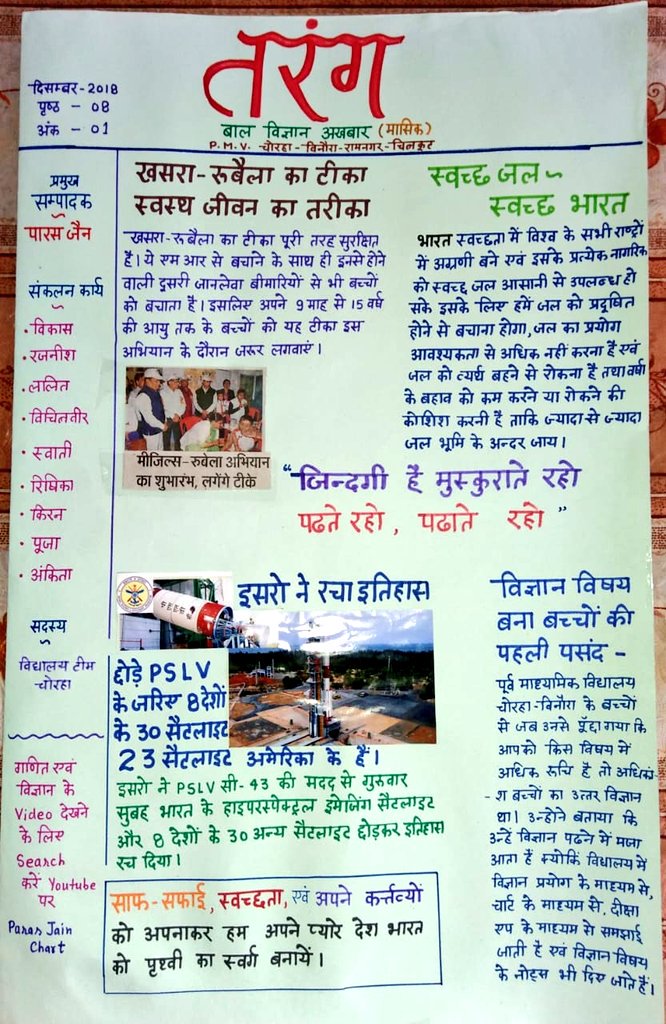 दिसम्बर-2018
पृष्ठ - 08
अंक - 01
तरंग
बाल विज्ञान अखबार (मासिक)
P.M.V.-चोरहा-बिनौरा-रामनगर-चित्रकूट
प्रमुख
सम्पादक
पारस जैन
संकलन कार्य
• विकास
• रजनीश
• ललित
• विचितवीर
• स्वाती
• रिषिका
• किरन
• पूजा
• अंकिता
सदस्य
विद्यालय टीम
-चोरहा
गणित एवं
विज्ञान के
Video देखने
के लिए
Search
करें Youtube
पर
Paras Jain
Chart
खसरा-रूबैला का टीका
स्वस्थ जीवन का तरीका
खसरा-रूबैला का टीका पूरी तरह सुरक्षित
है। ये एम आर से बचाने के साथ ही इनसे होने
वाली दुसरी जानलेवा बीमारियों से भी बच्चों
को बचाता है। इसलिए अपने 9 माह से 15 वर्ष
की आयु तक के बच्चों को यह टीका इस
अभियान के दौरान जरूर लगवाएं।
मीजिल्स-रुवेला अभियान
का शुभारंभ, लगेंगे टीके
स्वच्छ जल ~
स्वच्छ भारत
भारत स्वच्छता में विश्व के सभी राष्ट्रों
में अग्रणी बने एवं इसके प्रत्येक नागरिक
को स्वच्छ जल आसानी से उपलब्ध हो
सके इसके लिए हमें जल को प्रदूषित
होने से बचाना होगा, जल का प्रयोग
आवश्यकता से अधिक नहीं करना है एवं
जल को व्यर्थ बहने से रोकना है तथा वर्षा
के बहाव को कम करने या रोकने की
कोशिश करनी है ताकि ज्यादा से ज्यादा
जल भूमि के अन्दर जाय।
“जिन्दगी है मुस्कुराते रहो
पढते रहो, पढाते रहो”
इसरो ने रचा इतिहास
छोड़े PSLV
के जरिए 8 देशों
के 30 सैटलाइट
23 सैटलाइट अमेरिका के हैं।
इसरो ने PSLV सी-43 की मदद से गुरुवार
सुबह भारत के हाइपरस्पेक्ट्रल इमेजिंग सैटलाइट
और 8 देशों के 30 अन्य सैटलाइट छोड़कर इतिहास
रच दिया।
साफ-सफाई, स्वच्छता, एवं अपने कर्त्तव्यों
को अपनाकर हम अपने प्यारे देश भारत
को पृथ्वी का स्वर्ग बनायें।
विज्ञान विषय
बना बच्चों की
पहली पसंद -
पूर्व माध्यमिक विद्यालय
चोरहा-बिनौरा के बच्चों
से जब उनसे पूँछा गया कि
आपको किस विषय में
अधिक रूचि है तो अधिकां
-श बच्चों का उत्तर विज्ञान
था। उन्होने बताया कि
उन्हें विज्ञान पढने में मजा
आता है क्योंकि विद्यालय में
विज्ञान प्रयोग के माध्यम से,
चार्ट के माध्यम से, दीक्षा
एप के माध्यम से समझाई
जाती है एवं विज्ञान विषय
के नोट्स भी दिए जाते हैं।